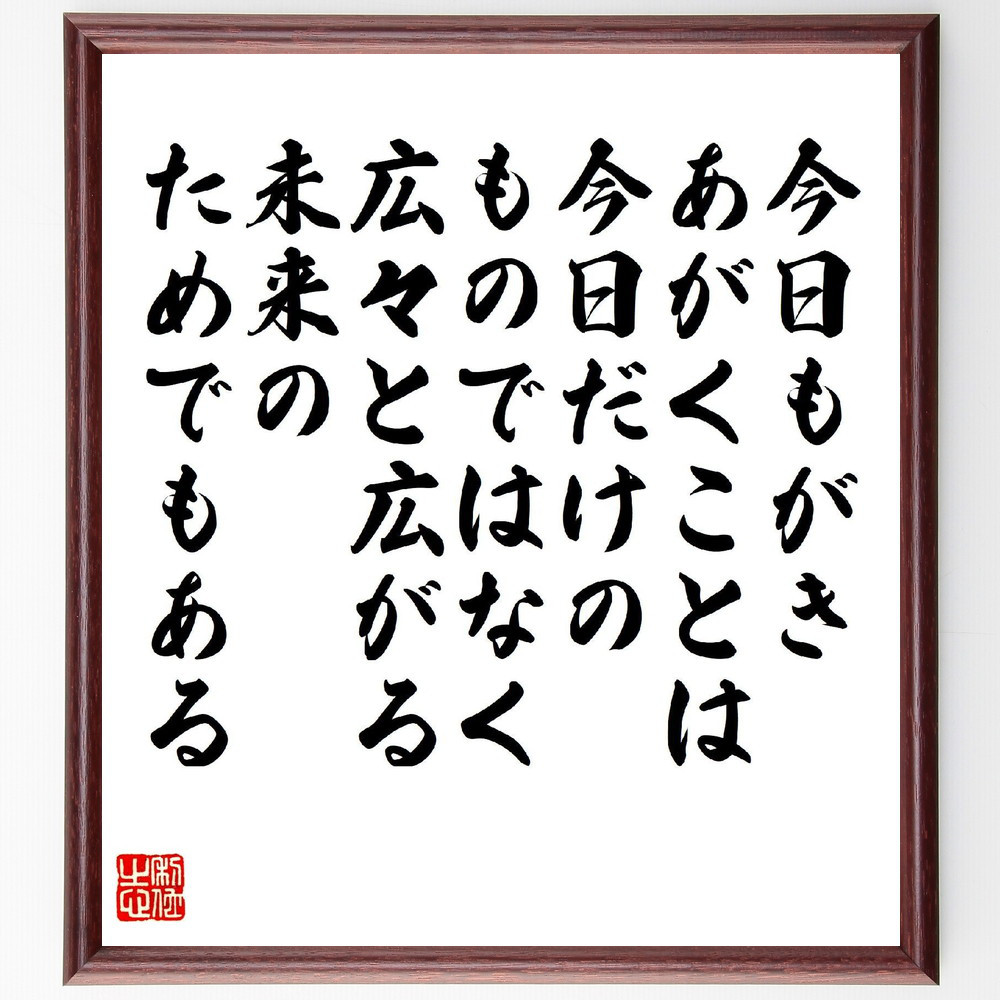 今日もがき
あがくことは
今日だけの
ものではなく
広々と広がる
未来の
ためでもある